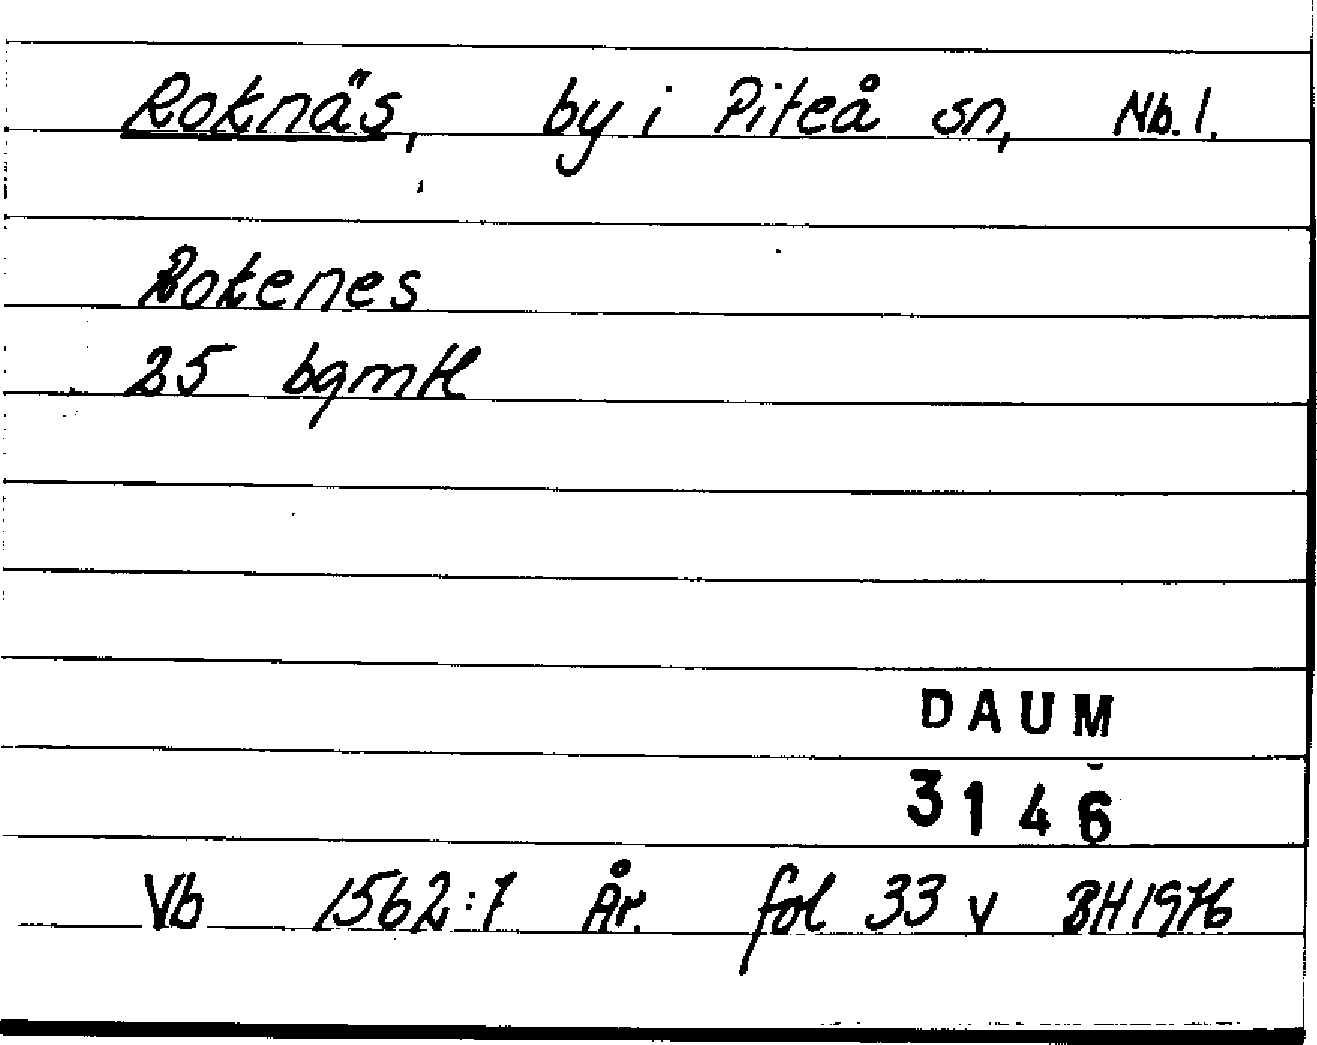 Roknäs, by i Piteå sn, Nb. l.
Rokenes
25 bgmtl
DAUM
3146
Vb 1562:7 År. fol 33 v BH 1976